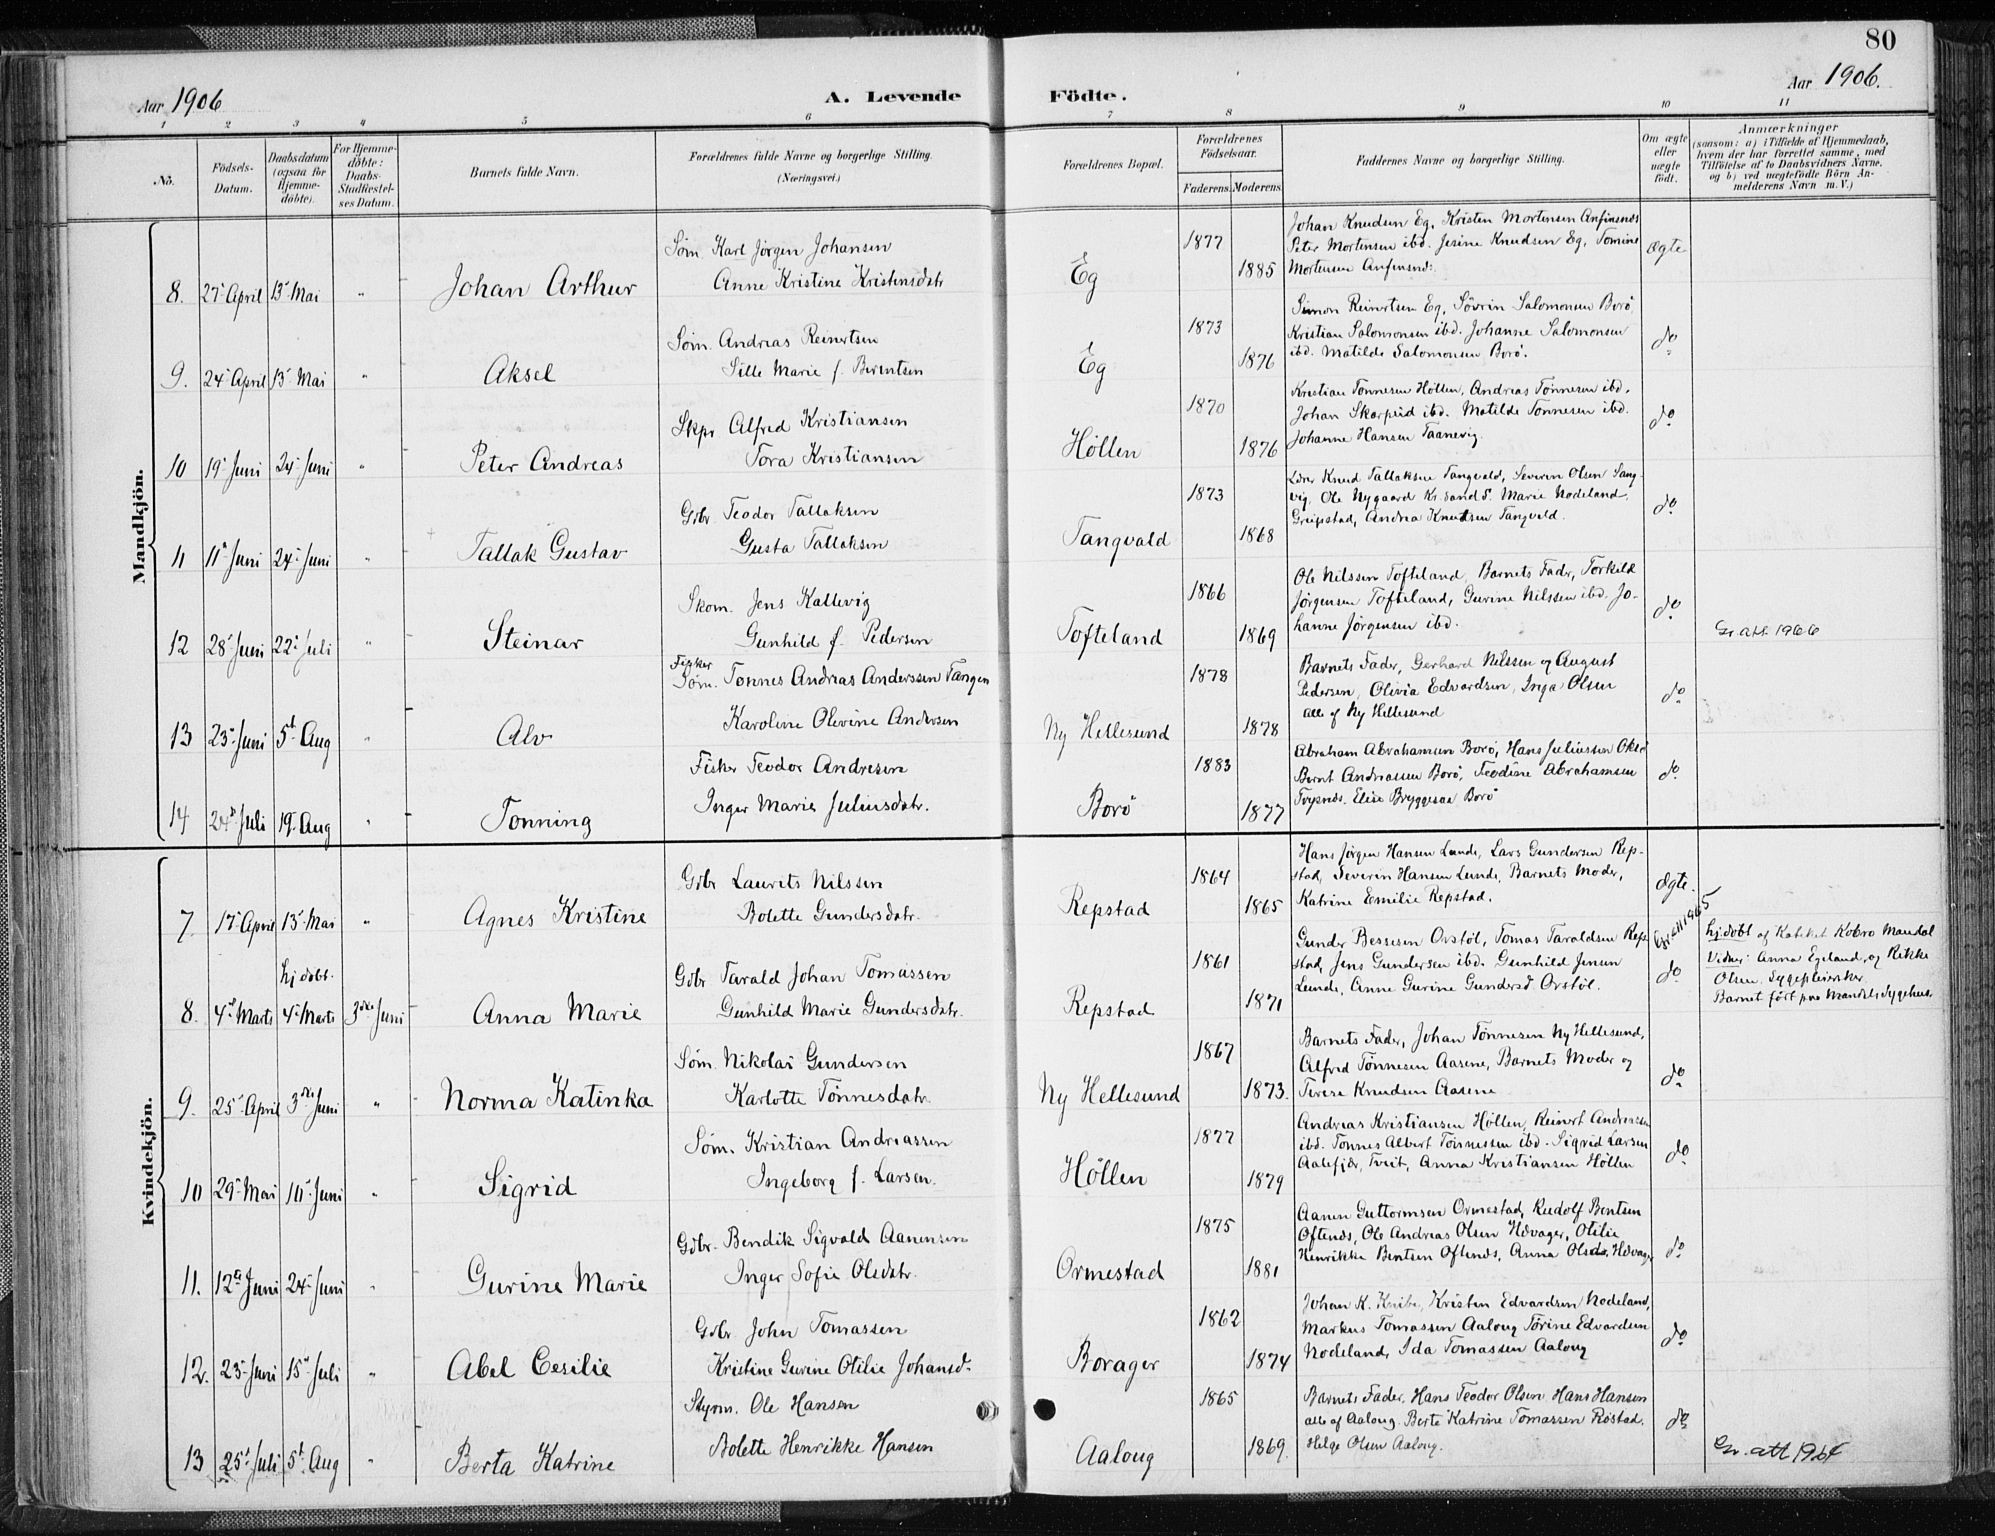 80
Aar 1906
A. Levende Födte.
Aar 1906.
1 2 3 4 5 6 7 8 9 10 11
No. Födsels-Datum. Daabsdatum (ogsaa for Hjemme-döbte). For Hjemme-döbte: Daabs-Stadfæstel-ses Datum. Barnets fulde Navn. Forældrenes fulde Navne og borgerlige Stilling. (Næringsvei.) Forældrenes Bopæl. Forældrenes Födselsaar. Faderens. Moderens. Faddernes Navne og borgerlige Stilling. Om ægte eller uægte födt. Anmærkninger (saasom: a) i Tilfælde af Hjemmedaab, hvem der har forrettet samme, med Tilföielse af to Daabsvidners Navne, og b) ved uægtefödte Börn An-melderens Navn m. V.)
Mandkjön.
Søm. Karl Jörgen Johansen 1877 Johan Knudsen Eg, Kristen Mortensen Anfinsnes
Peter Mortensen ibd. Jesine Knudsen Eg, Tomine Ægte
8. 27' April 13' Mai " Johan Arthur Anne Kristine Kristensdatr Eg 1885 Mortensen Anfinsnes.
Søm. Andreas Reinertsen 1873 Simon Reinertsen Eg, Søvrin Salomonsen Borö,
Kristian Salomonsen ibd. Johanne Salomonsen do
9. 24' April 13' Mai " Aksel Sille Marie f. Berentsen Eg 1876 ibd. Matilde Salomonsen, Borö.
Skpr Alfred Kristiansen 1870 Kristian Tønnesen Höllen, Andreas Tönnesen ibd.
Johan Skarpeid ibd. Matilde Tønnesen ibd. do
10 19' Juni 24' Juni " Peter Andreas Tora Kristiansen Höllen 1876 Johanne Hansen Taanevig.
Gbr. Teodor Tallaksen 1873 Lærer Knud Tallaksen Tangvald, Severin Olsen Lang-
vig. Ole Nygaard Kr.sand S. Marie Nodeland, do
11 11' Juni 24' Juni " Tallak Gustav Gusta Tallaksen Tangvald 1868 Greipstad, Andrea Knudsen Tangvald.
Skom. Jens Kallevig 1866 Ole Nilssen Tofteland, Barnets Fader, Torkild
Jørgensen Tofteland, Gurine Nilssen ibd. Jo- do
12 28' Juni 22' Juli " Steinar Gunhild f. Pedersen Tofteland 1869 hanne Jørgensen ibd. Gr. att 1966
Fisker
Søm. Tønnes Andreas Anderssen Tangen 1878 Barnets Fader, Gerhard Nilssen og August
Pedersen, Olivia Edvardsen, Inga Olsen do
13 23' Juni 5t Aug " Alv Karoline Olevine Andersen Ny Hellesund 1878 alle af Ny Hellesund
Fisker Teodor Andresen 1883 Abraham Abrahamsen Borö, Hans Juliussen Oksö
Bernt Andreassen Borö, Teodine Abrahamsen do
14 24' Juli 19' Aug " Tonning Inger Marie Juliusdatr. Borö 1877 Elise Bryggesaa Borö
Kvindekjön.
Gbr Laurits Nilssen 1864 Hans Jørgen Hansen Lunde, Lars Gundersen Rep-
stad, Severin Hansen Lunde, Barnets Moder, Ægte.
7. 17' April 13' Mai " Agnes Kristine Bolette Gundersdatr. Repstad 1865 Katrine Emilie Repstad. Gr.att 1965
hjdøbt. Gbr Tarald Johan Tomassen 1861 Gunder Bessesen Ovstøl, Tomas Taraldsen Rep-
stad, Jens Gundersen ibd. Gunhild Jensen do
8. 4' Marts 4' Marts 3die Juni Anna Marie Gunhild Marie Gundersdatr. Repstad 1871 Lunde, Anne Gurine Gundersd Ovstøl.
hjdøbt af Kateket Kobro Mandal
Vidner: Anna Egeland, og Rikke
Olsen. Sygepleiersker
Barnet födt paa Mandals Sygehus.
Søm. Nikolai Gundersen 1867 Barnets Fader, Johan Tønnesen Ny Hellesund,
Alfred Tønnesen Aasene, Barnets Moder og do
9. 25' April 3die Juni " Norma Katinka Karlotte Tönnesdatr. Ny Hellesund 1873. Terese Knudsen Aasene
Søm. Kristian Andreassen 1877 Andreas Kristiansen Höllen, Reinert Andreassen
ibd. Tønnes Albert Tønnessen ibd. Sigrid Larsen do
10 29' Mai 10' Juni " Sigrid Ingeborg f. Larsen. Höllen 1879 Aalefjær, Tveit, Anna Kristiansen Höllen
Gbr. Bendik Sigvald Aanensen 1875 Aanen Guttormsen Ormestad, Rudolf Bentsen
Oftenes, Ole Andreas Olsen Hövager, Otilie do
11. 12' Juni 24' Juni " Gurine Marie Inger Sofie Olsdatr. Ormestad 1881 Henrikke Bentsen Oftenes, Anna Olsdr. Hövager
Gbr John Tomassen 1862 Johan K. Knibe, Kristen Edvardsen Nodeland,
Markus Tomassen Aalong Tørine Edvardsen do
12. 23' Juni 15' Juli " Abel Cesilie Kristine Gurine Otilie Johansd. Borager 1874 Nodeland, Ida Tomassen Aalong
Styrm. Ole Hansen 1865 Barnets Fader, Hans Teodor Olsen Hans Hansen
alle af Aalong. Berte Katrine Tomassen Röstad. do
13 25' Juli 5t Aug " Berta Katrine Bolette Henrikke Hansen Aalong 1869. Helge Olsen Aalong. Gr. att 1964